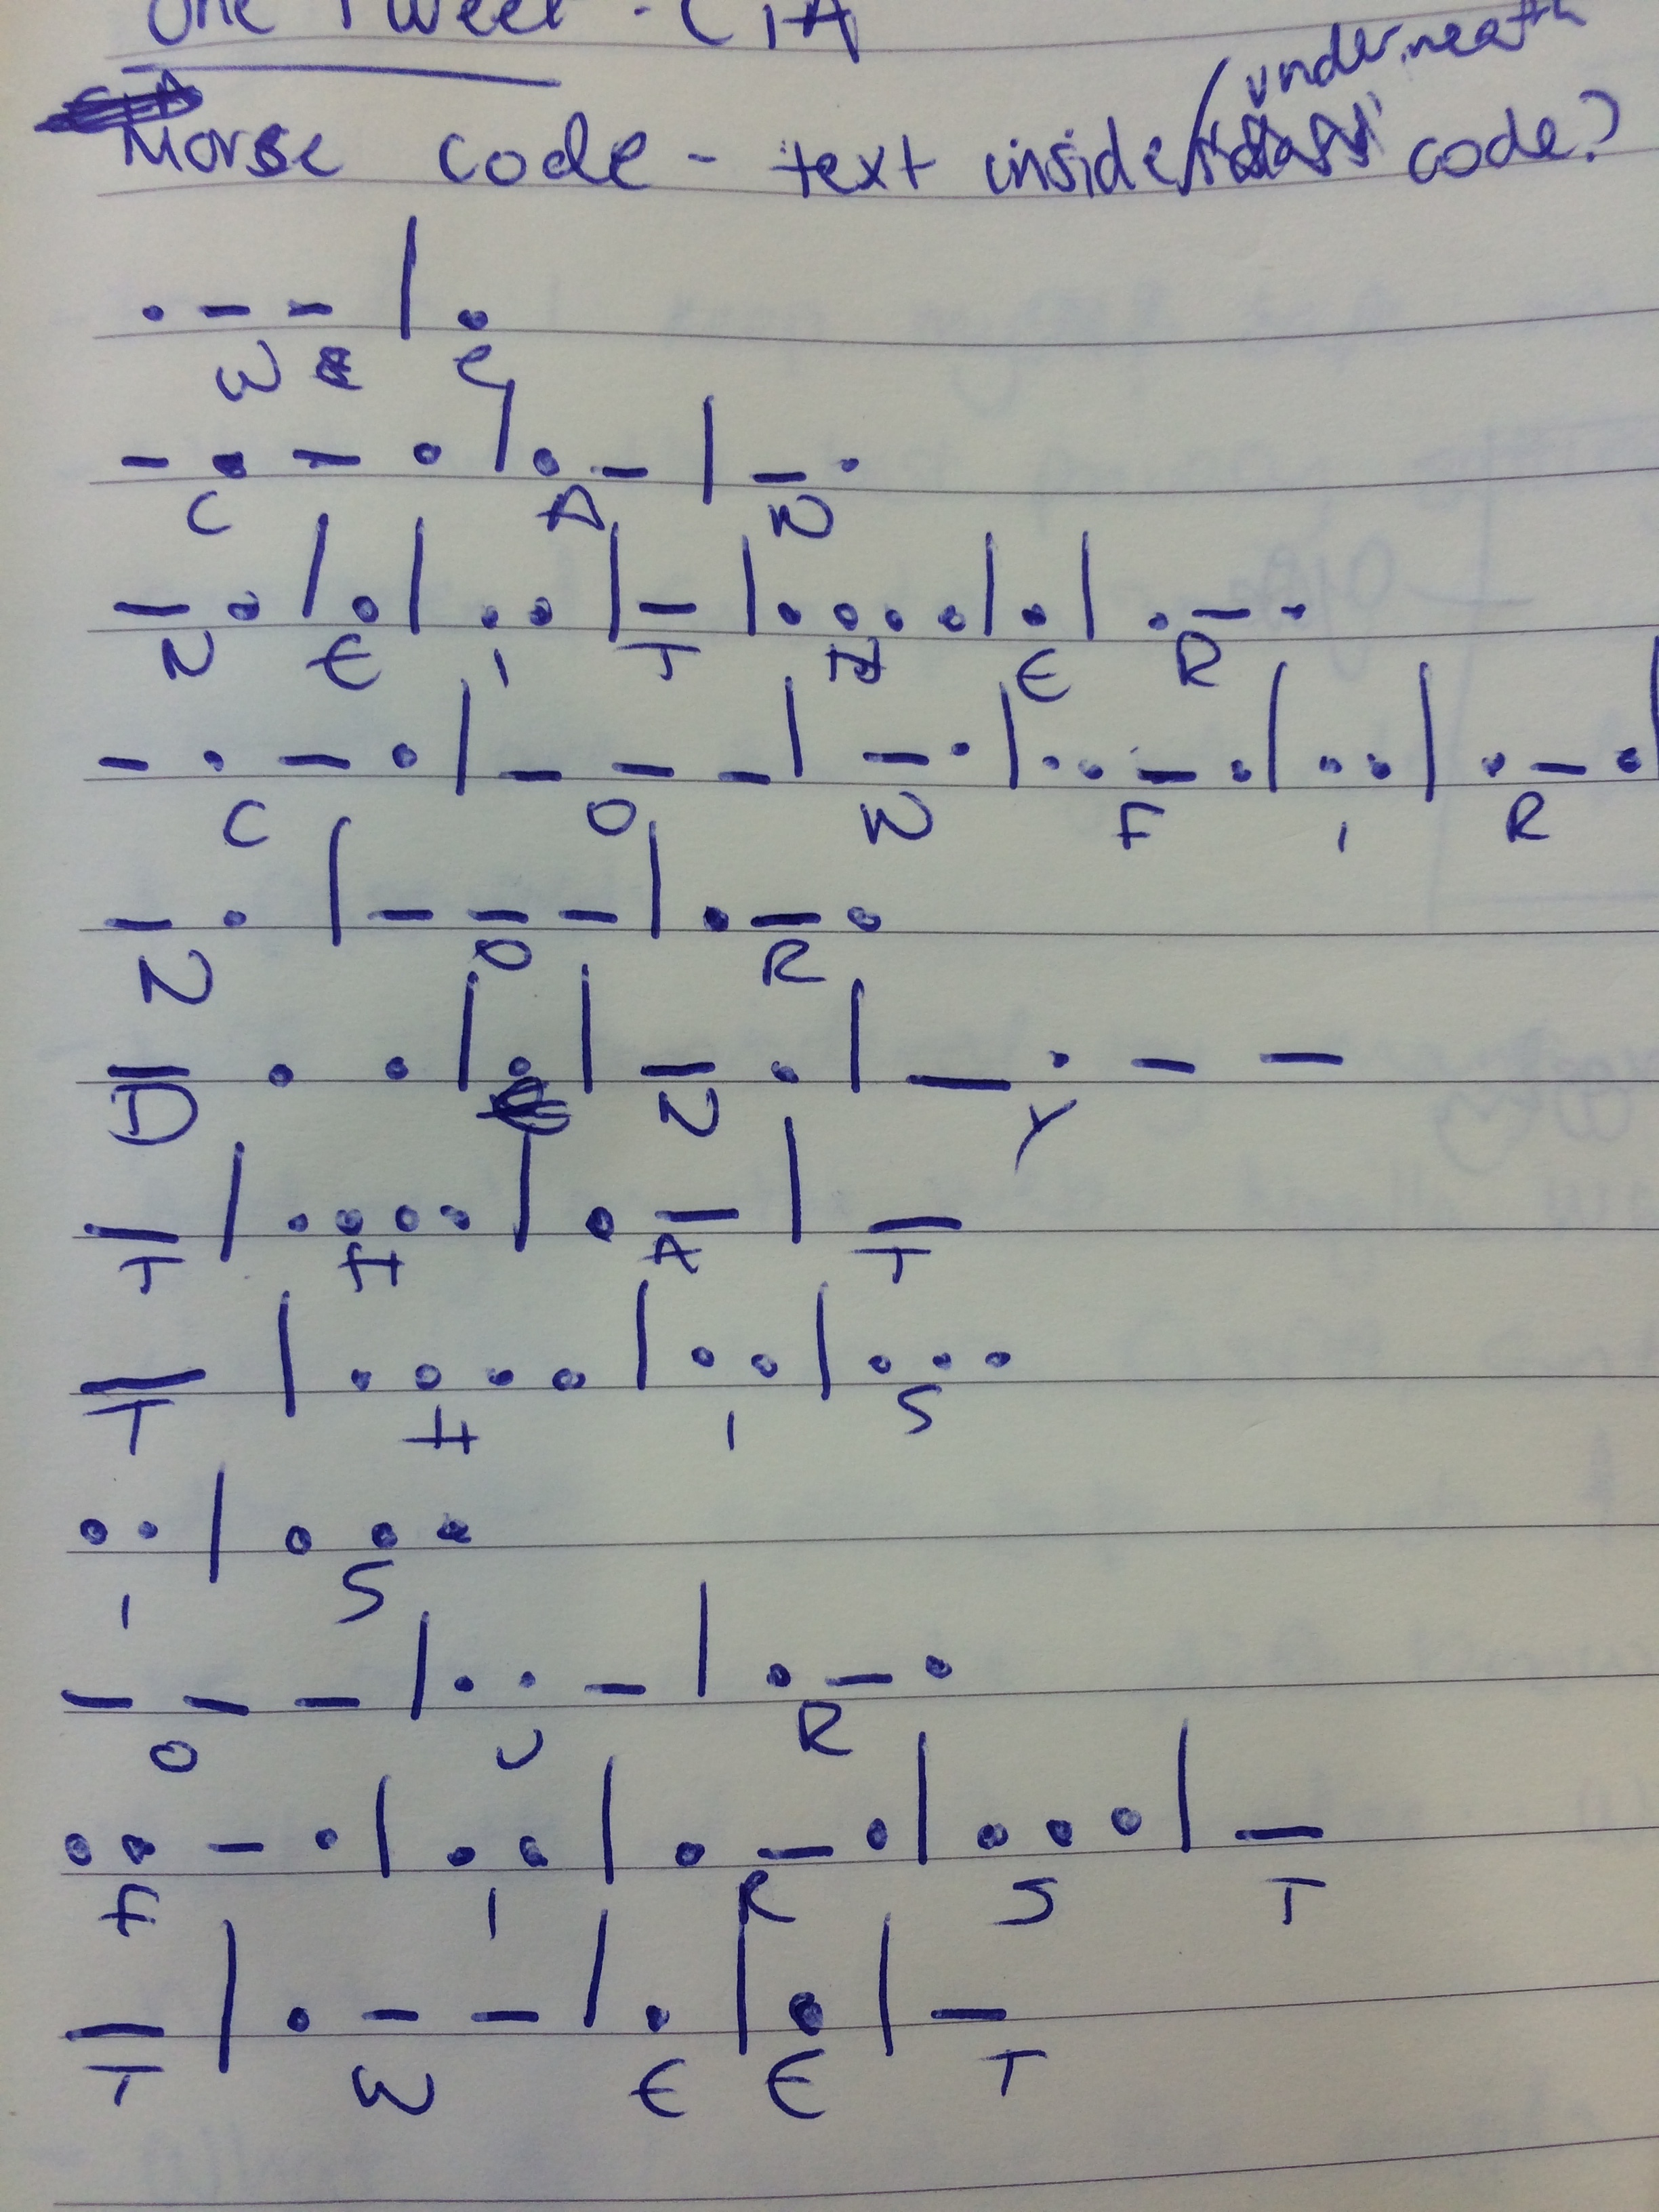 One Tweet - CIA
Morse code - text inside/underneath code?
. - - | .
W e
- . - . | . - | - .
C A N
- . | . | . . | - | . . . . | . | . - .
N E I T H E R
- . - . | - - - | - . | . . - . | . . | . - . |
C O N F I R
- . | - - - | . - .
N O R
- . . | . | - . | - . - -
D E N Y
- | . . . . | . - | -
T H A T
- | . . . . | . . | . . .
T H I S
. . | . . .
I S
- - - | . . - | . - .
O U R
. . - . | . . | . - . | . . . | -
F I R S T
- | . - - | . | . | -
T W E E T